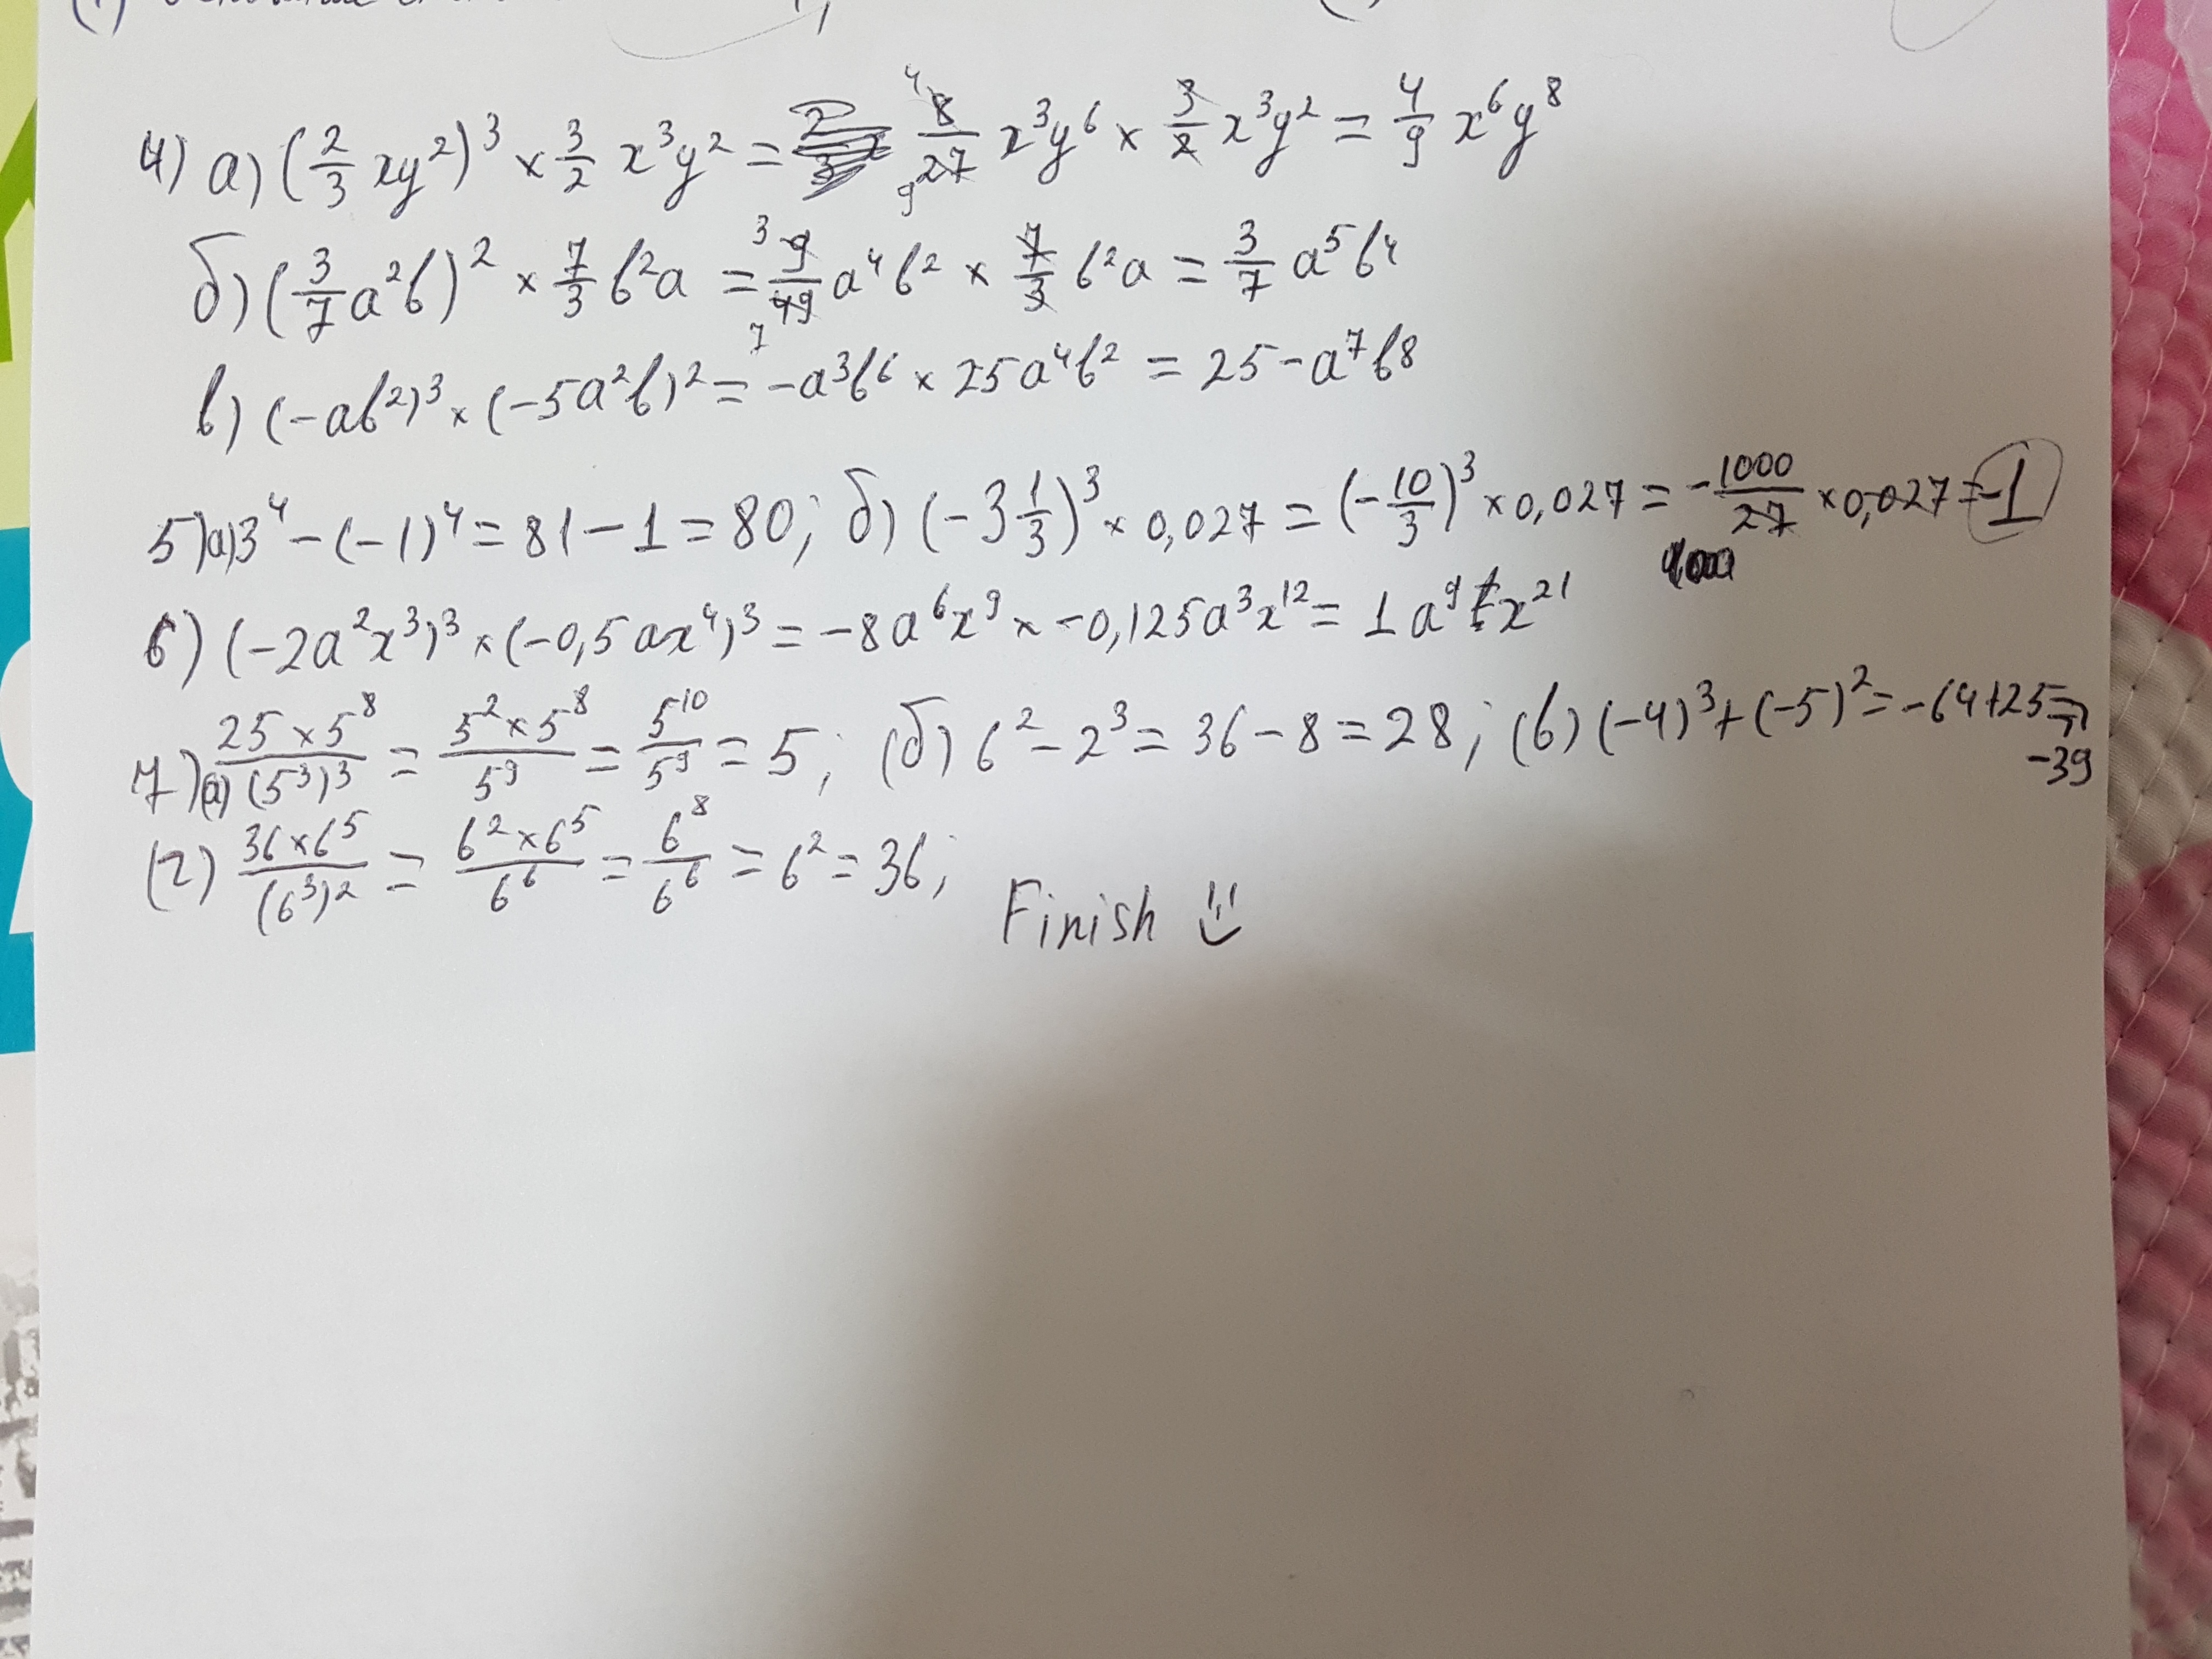 4) а) (2/3 xy²)³ × 3/2 x³y² = 8/27 x³y⁶ × 3/2 x³y² = 4/9 x⁶y⁸
б) (3/7 a²b)² × 7/3 b²a = 9/49 a⁴b² × 7/3 b²a = 3/7 a⁵b⁴
в) (-ab²)³ × (-5a²b)² = -a³b⁶ × 25a⁴b² = 25-a⁷b⁸
5) а) 3⁴ - (-1)⁴ = 81 - 1 = 80; б) (-3 1/3)³ × 0,027 = (-10/3)³ × 0,027 = -1000/27 × 0,027 = -1
6) (-2a²x³)³ × (-0,5ax⁴)³ = -8a⁶x⁹ × -0,125a³x¹² = 1a⁹x²¹
7) (а) 25 × 5⁸/(5³)³ = 5² × 5⁸/5⁹ = 5¹⁰/5⁹ = 5; (б) 6² - 2³ = 36 - 8 = 28; (в) (-4)³ + (-5)² = -64 + 25 = -39
(г) 36 × 6⁵/(6³)² = 6² × 6⁵/6⁶ = 6⁸/6⁶ = 6² = 36;
Finish